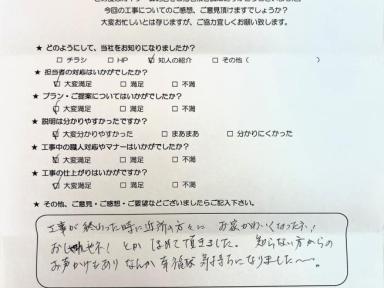 今回の工事についてのご感想、ご意見頂けますでしょうか？
大変お忙しいとは存じますが、ご協力宜しくお願い致します。
★ どのようにして、当社をお知りになりましたか？
□ チラシ □ HP ☑ 知人の紹介 □ その他（ ）
★ 担当者の対応はいかがでしたか？
☑ 大変満足 □ 満足 □ 不満
★ プラン・ご提案についてはいかがでしたか？
☑ 大変満足 □ 満足 □ 不満
★ 説明は分かりやすかったですか？
☑ 大変分かりやすかった □ まあまあ □ 分かりにくかった
★ 工事中の職人対応やマナーはいかがでしたか？
☑ 大変満足 □ 満足 □ 不満
★ 工事の仕上がりはいかがですか？
☑ 大変満足 □ 満足 □ 不満
★ その他、ご意見・ご感想・ご要望などございましたらご記入下さい。
工事が終わった時に近所の方々に お家かわいくなったネ!
おしゃれネ! とか ほめて頂きました。 知らない方からの
お声かけもあり なんか 有頂天な 気持ちになりました〜。